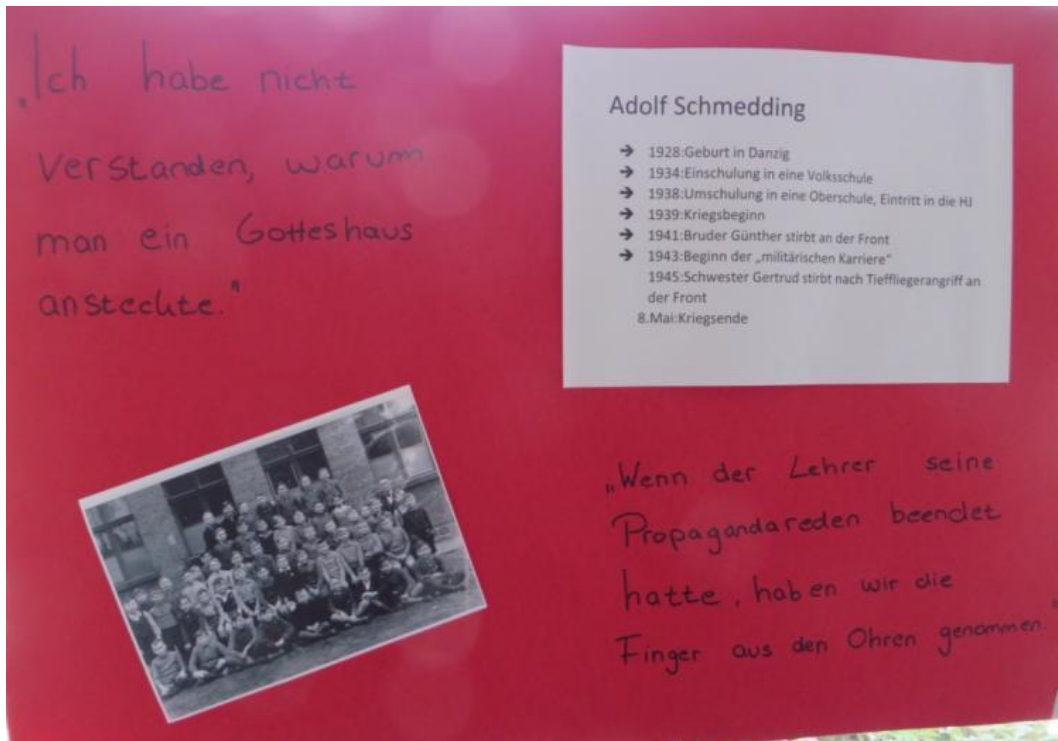 „Ich habe nicht
verstanden, warum
man ein Gotteshaus
ansteckte."
Adolf Schmedding
➔ 1928:Geburt in Danzig
➔ 1934:Einschulung in eine Volksschule
➔ 1938:Umschulung in eine Oberschule, Eintritt in die HJ
➔ 1939:Kriegsbeginn
➔ 1941:Bruder Günther stirbt an der Front
➔ 1943:Beginn der „militärischen Karriere"
1945:Schwester Gertrud stirbt nach Tieffliegerangriff an
der Front
8.Mai:Kriegsende
„Wenn der Lehrer seine
Propagandareden beendet
hatte, haben wir die
Finger aus den Ohren genommen."